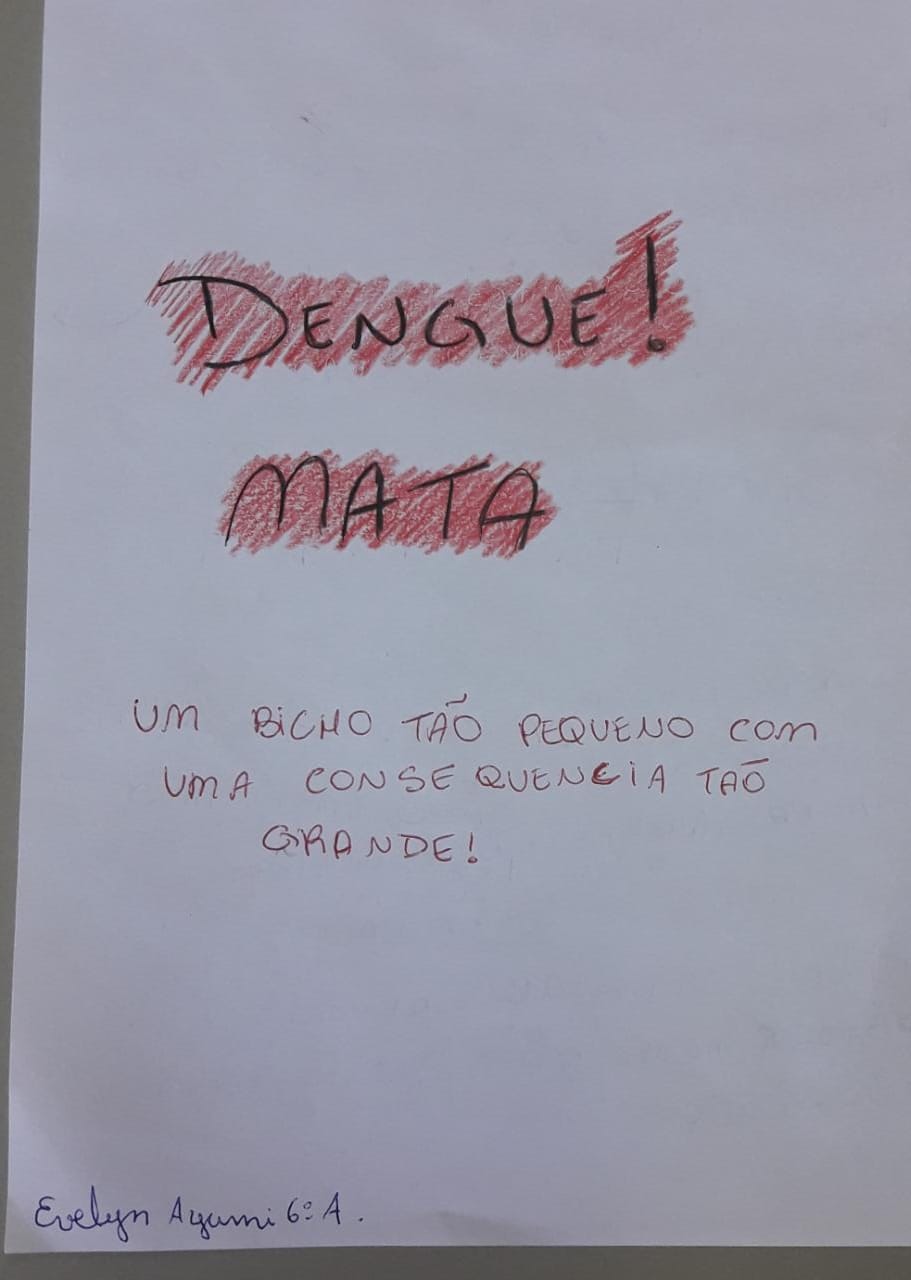 DENGUE!
MATA
UM BICHO TÃO PEQUENO COM
UMA CONSEQUENCIA TAÕ
GRANDE!
Evelyn Ayumi 6º A.